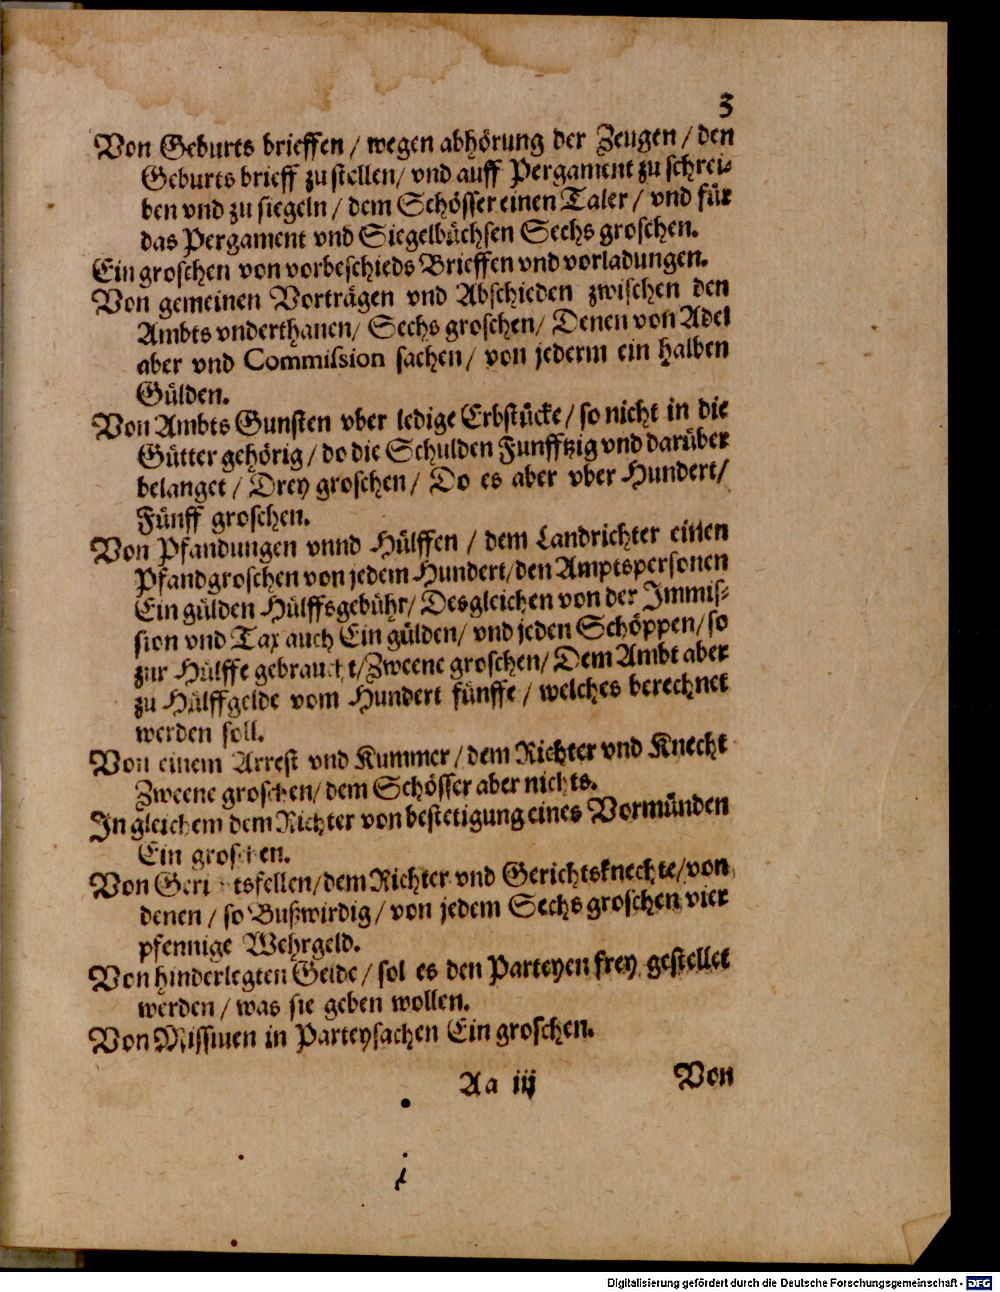 3
Von Geburts brieffen / wegen abhörung der Zeugen / den
Geburts brieff zu stellen / vnd auff Pergament zu schrei-
ben vnd zu siegeln / dem Schösser einen Taler / vnd für
das Pergament vnd Siegelbüchsen Sechs groschen.
Ein groschen von vorbeschieds Brieffen vnd vorladungen.
Von gemeinen Vorträgen vnd Abschieden zwischen den
Ambts vnderthanen / Sechs groschen / Denen von Adel
aber vnd Commission sachen / von jederm ein halben
Gülden.
Von Ambts Gunsten vber ledige Erbstücke / so nicht in die
Gütter gehörig / do die Schulden Funfftzig vnd darüber
belanget / Drey groschen / Do es aber vber Hundert /
Fünff groschen.
Von Pfandungen vnnd Hülffen / dem Landrichter einen
Pfandgroschen von jedem Hundert / den Amptspersonen
Ein gülden Hülffsgebühr / Desgleichen von der Immis-
sion vnd Tax auch Ein gülden / vnd jeden Schöppen / so
zur Hülffe gebraucht / Zweene groschen / Dem Ambt aber
zu Hülffgelde vom Hundert fünffe / welches berechnet
werden soll.
Von einem Arrest vnd Kummer / dem Richter vnd Knecht
Zweene groschen / dem Schösser aber nichts.
In gleichem dem Richter von bestetigung eines Vormünden
Ein groschen.
Von Gerichtsfellen / dem Richter vnd Gerichtsknechte / von
denen / so Bußwirdig / von jedem Sechs groschen vier
pfennige Wehrgeld.
Von hinderlegten Gelde / sol es den Parteyen frey gestellet
werden / was sie geben wollen.
Von Missiuen in Parteysachen Ein groschen.
Aa iij
Von
Digitalisierung gefördert durch die Deutsche Forschungsgemeinschaft - DFG